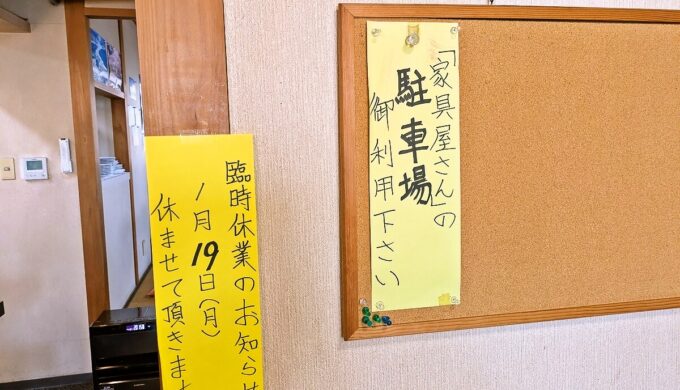 「家具屋さん」の
駐車場
御利用下さい
臨時休業のお知らせ
1月19日(月)
休ませて頂きま